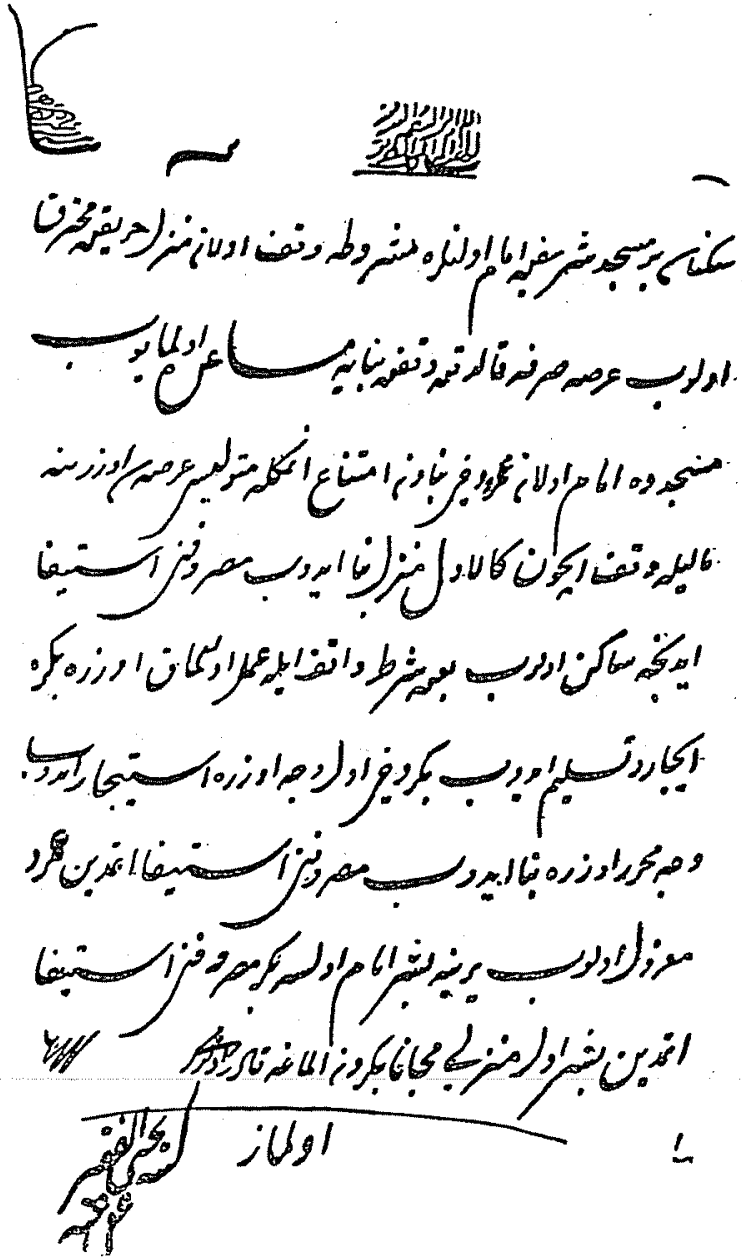 سكناسى بر مسجد شريفه امام اولنلره مشروطه وقف اولان منزل حريقده محترق
اولوب عرصه صرفه قالدقده وقفه بنايه مساعده اولمايوب
مسجدده امام اولان عمرو دخى بنادن امتناع اتمكله متوليسى عرصه سى اوزرينه
ماليله وقف ايچون كالاول منزل بنا ايدوب مصروفنى استيفا
ايدنجه ساكن اولوب بعده شرط واقف ايله عمل اولنمق اوزره بكره
ايجار و تسليم ايدوب بكر دخى اول وجه اوزره استيجار ايدوب
وجه محرر اوزره بنا ايدوب مصروفنى استيفا اتمدين عمرو
معزول اولوب يرينه بشر امام اولسه بكر مصروفنى استيفا
اتمدين بشر اول منزلى مجانا بكردن الماغه قادر اولورمى
الجواب
اولماز
كتبه الفقير